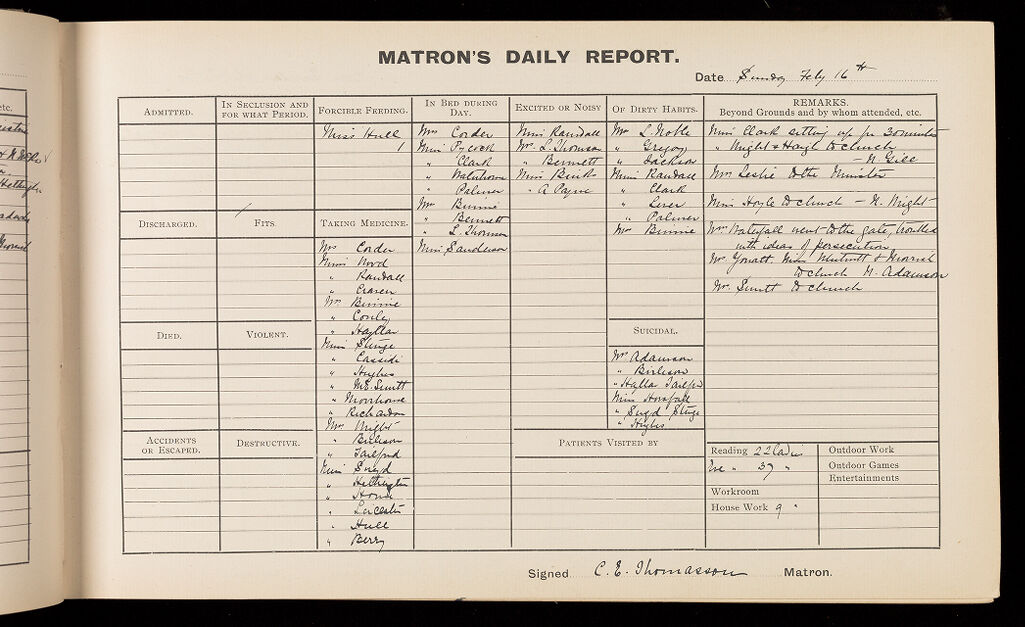 MATRON'S DAILY REPORT.
Date Sunday Feby 16th
ADMITTED.
IN SECLUSION AND
FOR WHAT PERIOD.
FORCIBLE FEEDING.
Miss Hull
1
IN BED DURING
DAY.
Mrs Corder
Miss Pycock
" Clark
" Waterhouse
" Palmer
Mrs Binnie
" Bennett
" L. Thomson
Miss Sanderson
EXCITED OR NOISY
Miss Randall
Mrs. L. Thomson
" Bennett
Miss Binks
" A Payne
OF DIRTY HABITS.
Mrs L. Noble
" Gregory
" Jackson
Miss Randall
" Clark
"
" Palmer
Mrs Binnie
REMARKS.
Beyond Grounds and by whom attended, etc.
Miss Clark sitting up for 30 minutes
" Wright & Haigh to church
— N. Gill
Mrs Leslie to the Minister
Miss Hoyle to church — N. Wright
Mrs. Waterfall went to the gate, troubled
with ideas of persecution
Mrs Miss & to church N. Adamson
Mrs. to church
DISCHARGED.
FITS.
TAKING MEDICINE.
Mrs Corder
Miss Wood
" Randall
" Fraser
Mrs. Binnie
" Conley
" Hayllar
Miss Sturge
" Cassidi
" Hughes
"
" Moorhouse
" Richardson
Mrs Wright
" Birleson
" Tailford
Miss Suyd
" Hetherington
" Horne
" Leicester
" Hull
" Berry
DIED.
VIOLENT.
SUICIDAL.
Mrs Adamson
" Birleson
" Hallas Tailford
Miss Horsfall
" Suyd Sturge
" Hughes
ACCIDENTS
OR ESCAPED.
DESTRUCTIVE.
PATIENTS VISITED BY
Reading 22 Ladies
Eve " 37 "
Workroom
House Work 9 "
Outdoor Work
Outdoor Games
Entertainments
Signed C. E. Thomasson Matron.